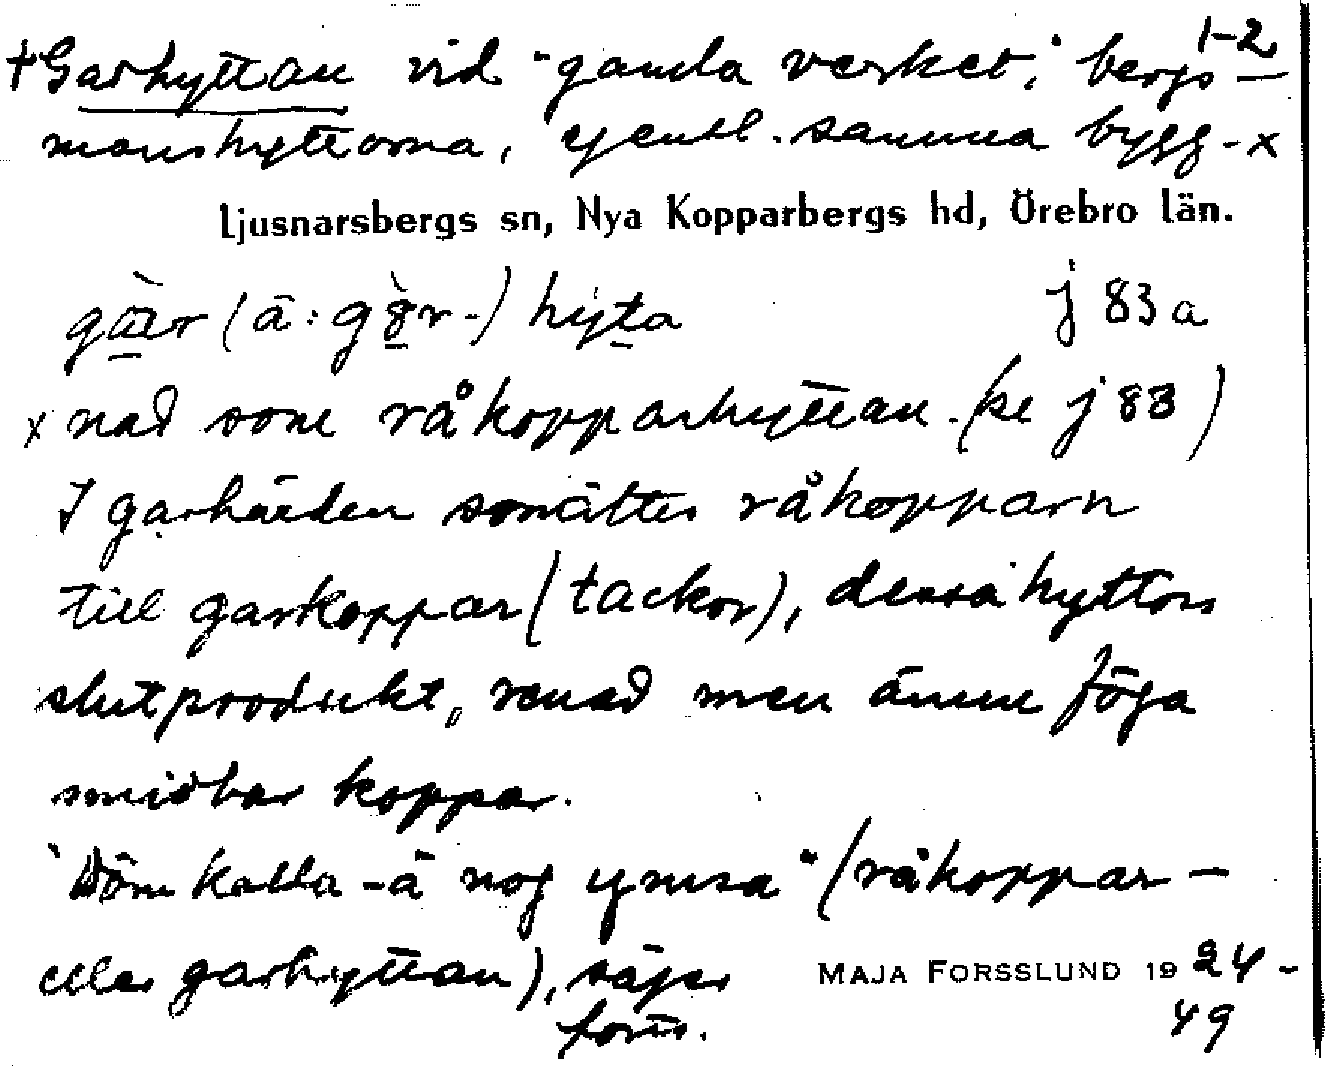 1-2
+ Garhyttan vid "gamla verket," bergs-
manshyttorna, egentl. samma bygg- x
Ljusnarsbergs sn, Nya Kopparbergs hd, Örebro län.
gàr (ä: gr-) hyta j 83 a
x nad som råkopparhyttan. (se j 83)
I garhärden smältes råkopparn
till garkoppar (tackor), dessa hyttors
slutprodukt, renad men ännu föga
smidbar koppar.
"Döm kalla -ä nog ymsa" (råkoppar-
eller garhyttan), säger MAJA FORSSLUND 1924-
49